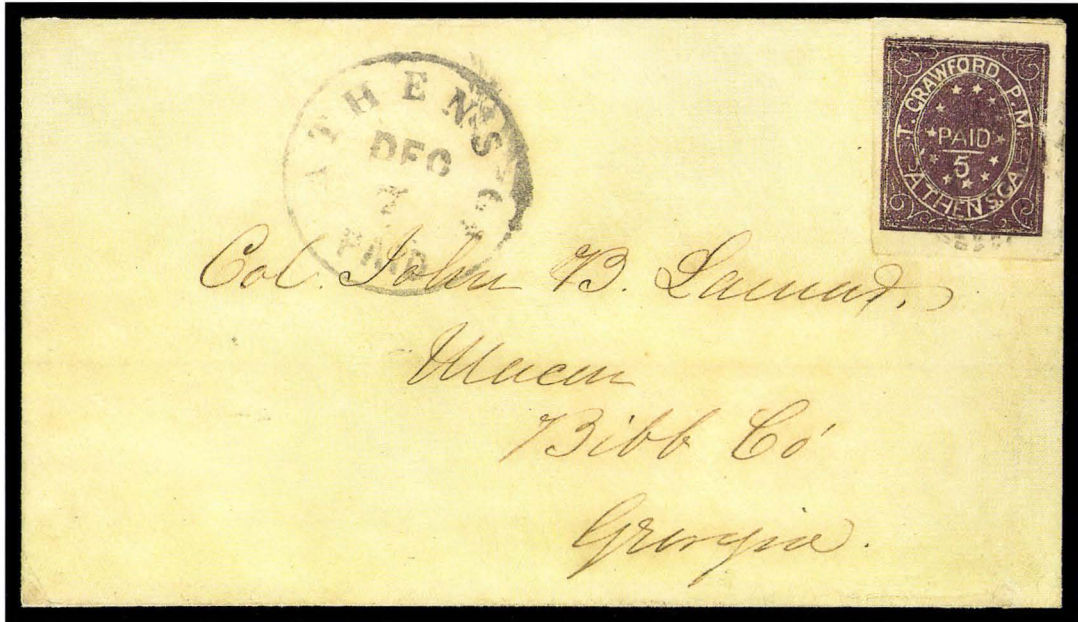 ATHENS GA
DEC
7
PAID
T. CRAWFORD, P. M.
PAID
5
ATHENS, GA
Col. John B. Lamar,
Macon
Bibb Co
Georgia.